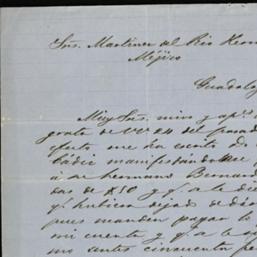 Sres. Martinez del Rio Herm
Méjico
Guadala
Muy Sres. mios y apr
grata de Vs. 24 del pasado
efecto me ha escrito D.
Cádiz manifestándome
á su hermano Bernar
das de $50 y qe. á le die
qe. hubiera dejado de
pues manden pagar
mi cuenta y qe. a
mo antes cincuenta pe